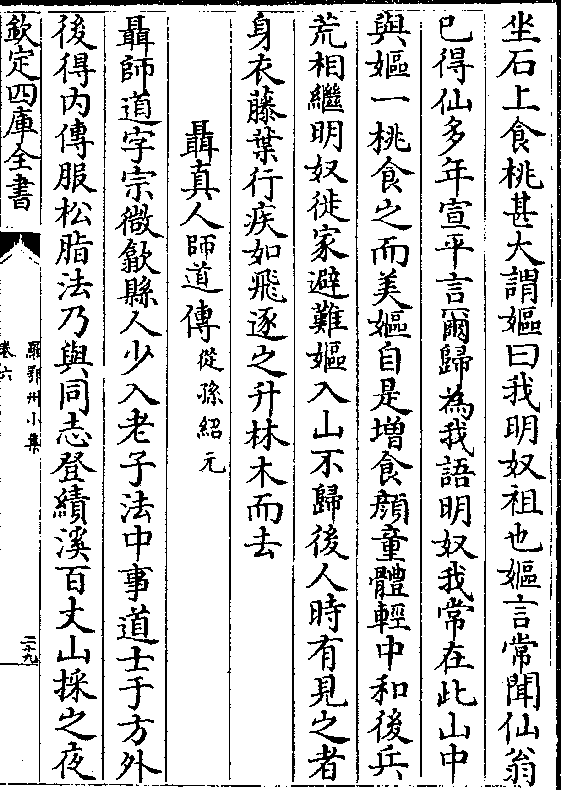 坐石上食桃甚大謂嫗曰我明奴祖也嫗言常聞仙翁
已得仙多年宣平言爾歸為我語明奴我常在此山中
與嫗一桃食之而美嫗自是增食顔童體輕中和後兵
荒相繼明奴徙家避難嫗入山不歸後人時有見之者
身衣藤葉行疾如飛逐之升林木而去
聶真人師道傳從孫紹元
聶師道字宗微歙縣人少入老子法中事道士于方外
後得内傳服松脂法乃與同志登績溪百丈山採之夜
欽定四庫全書
羅鄂州小集
卷六
二十九